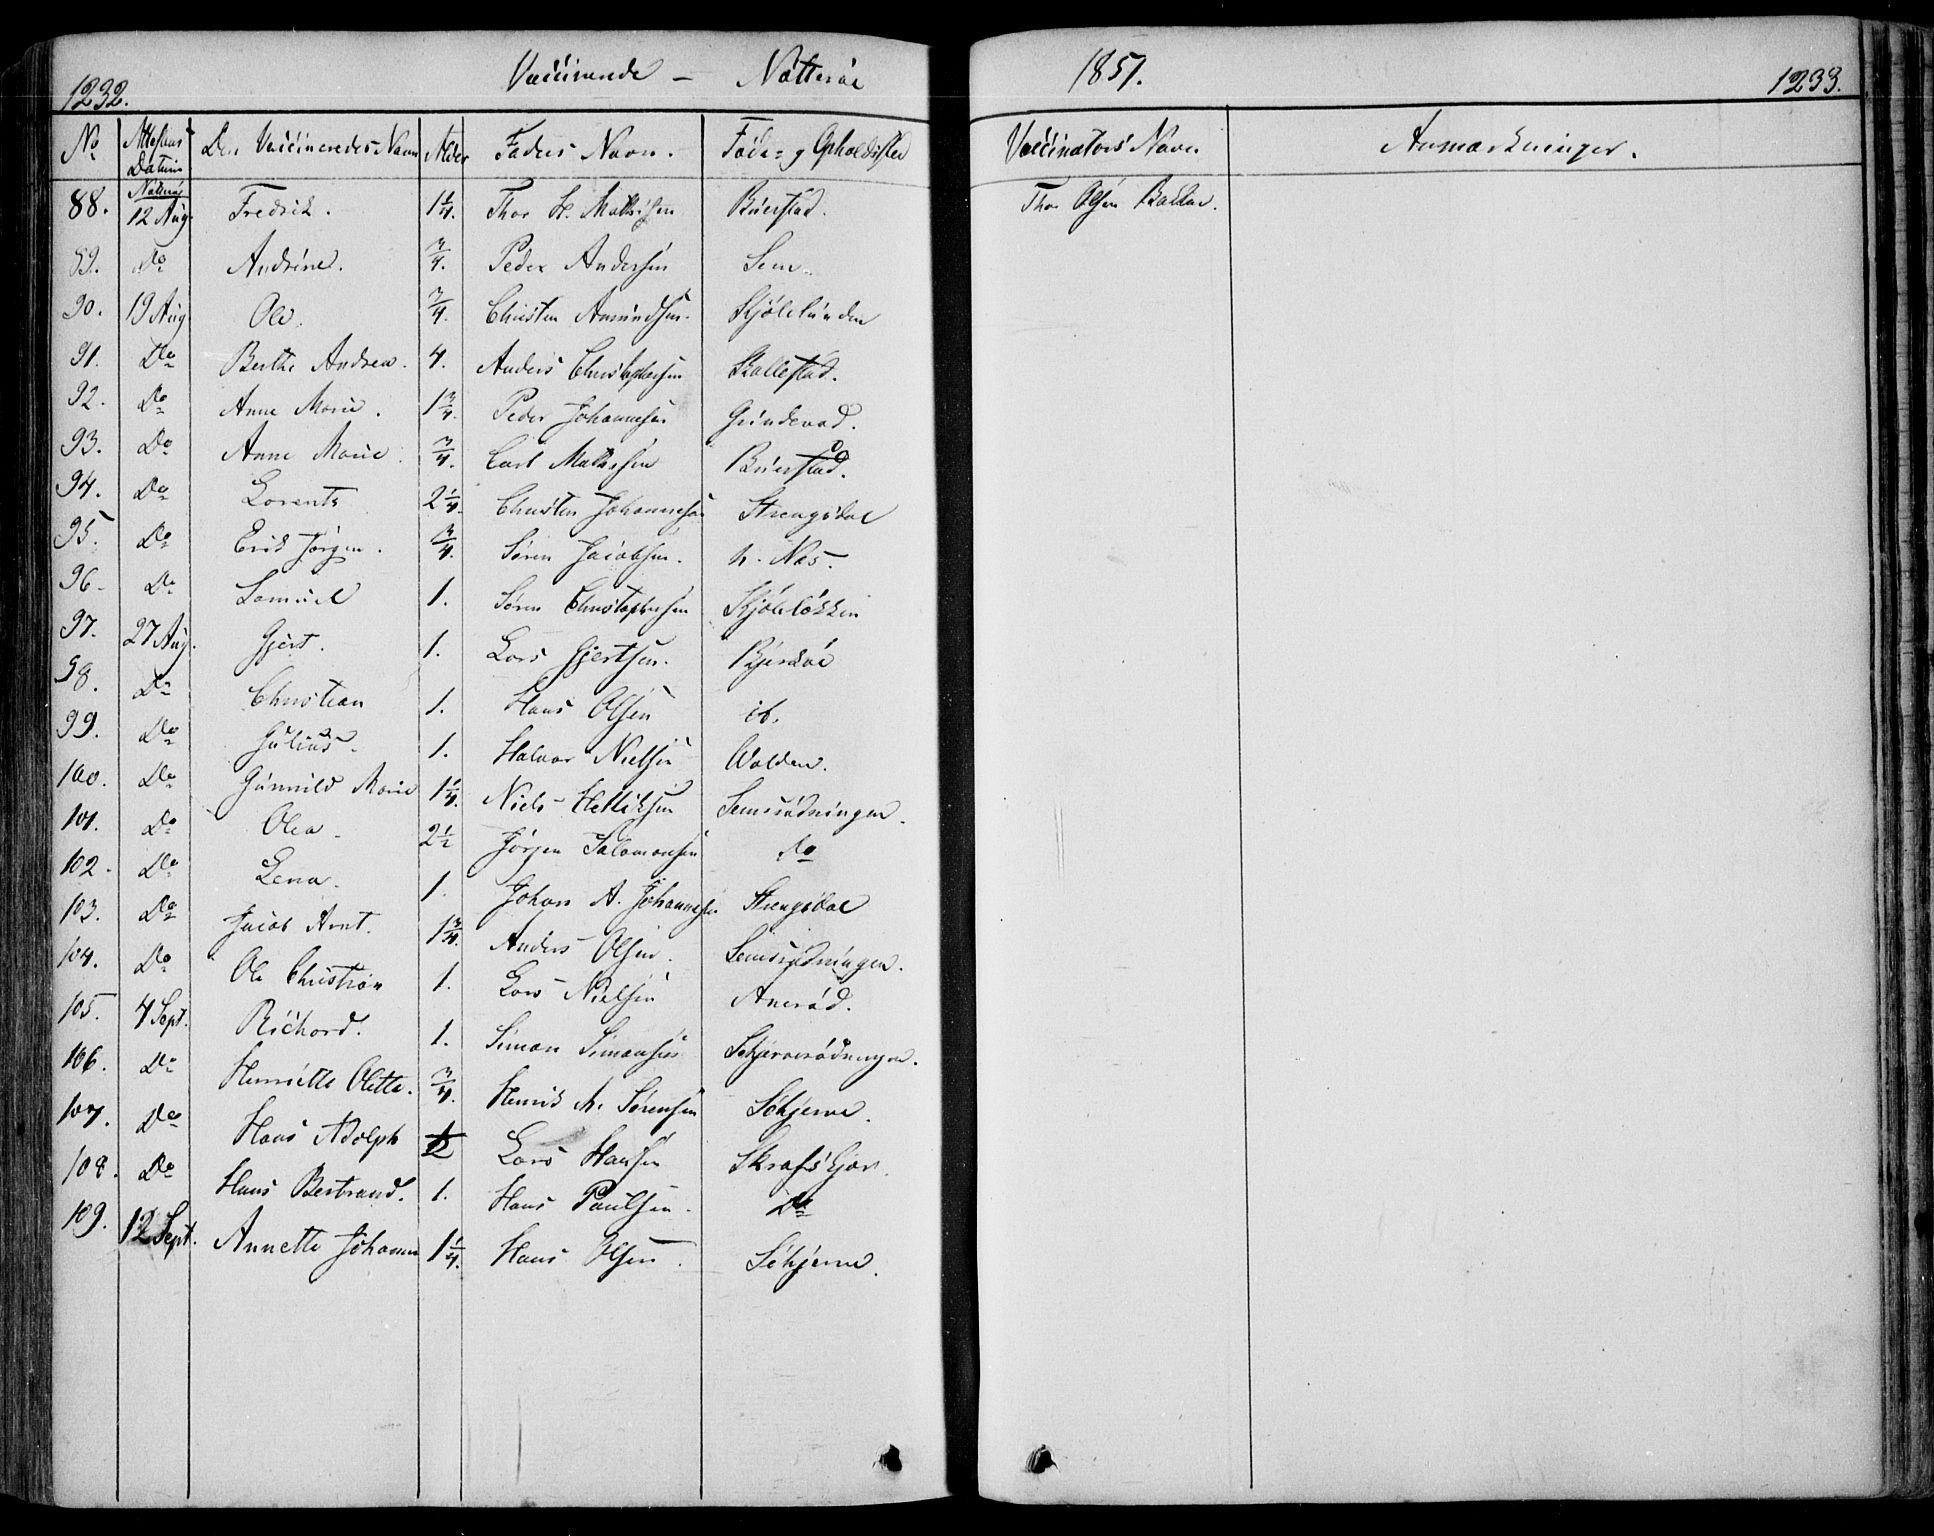 1232. Vaccinerede – Nøtterøe 1851. 1233.
No Attestens Datum Den Vaccineredes Navn Alder Faders Navn. Føde- og Opholdssted Vaccinators Navn Anmærkninger.
88. Nøtterøe 12 Aug. Fredrik. 1 1/4. Thor H. Mathisen Buerstad. Thor Olsen
89. Do Andrine. 3/4. Peder Andersen Sem.
90. 19 Aug Ole. 3/4. Christen Amundsen. Kjølelunden
91. Do Berthe Andrea. 4. Anders Christophersen Skallestad.
92. Do Anne Marie. 1 3/4. Peder Johannesen Grindevad.
93. Do Anne Marie. 3/4. Carl Mathisen Buerstad.
94. Do Lorents 2 1/4. Christen Johannesen Strengsdal
95. Do Erik Jørgen. 3/4. Søren Jacobsen. n. Næs.
96. Do Samuel 1. Søren Christophersen Kjøleløkken
97. 27 Aug. Gjert. 1. Lars Gjertsen. Bjerkøe
98. Do Christian 1. Hans Olsen ib.
99. Do Julius. 1. Halvor Nielsen Wolden.
100. Do Gunnild Marie 1 1/4. Niels Helliksen Semsrødningen.
101. Do Olea. 2 1/2 Jørgen Salomonsen do
102. Do Lena. 1. Johan A. Johannesen Strengsdal
103. Do Jacob Arnt. 1 3/4. Anders Olsen. Semsrødningen.
104. Do Ole Christian 1. Lars Nielsen Anerød.
105. 4 Sept. Richard. 1. Simon Simonsen Schjerverødningen.
106. Do Henriette Olette. 3/4. Henrik M. Sørensen Schjerve.
107. Do Hans Adolph 1/2 Lars Hansen
108. Do Hans Bertrand. 1. Hans Paulsen. Do
109. 12 Sept. Annette Johanne 1 1/4. Hans Olsen. Schjerve.